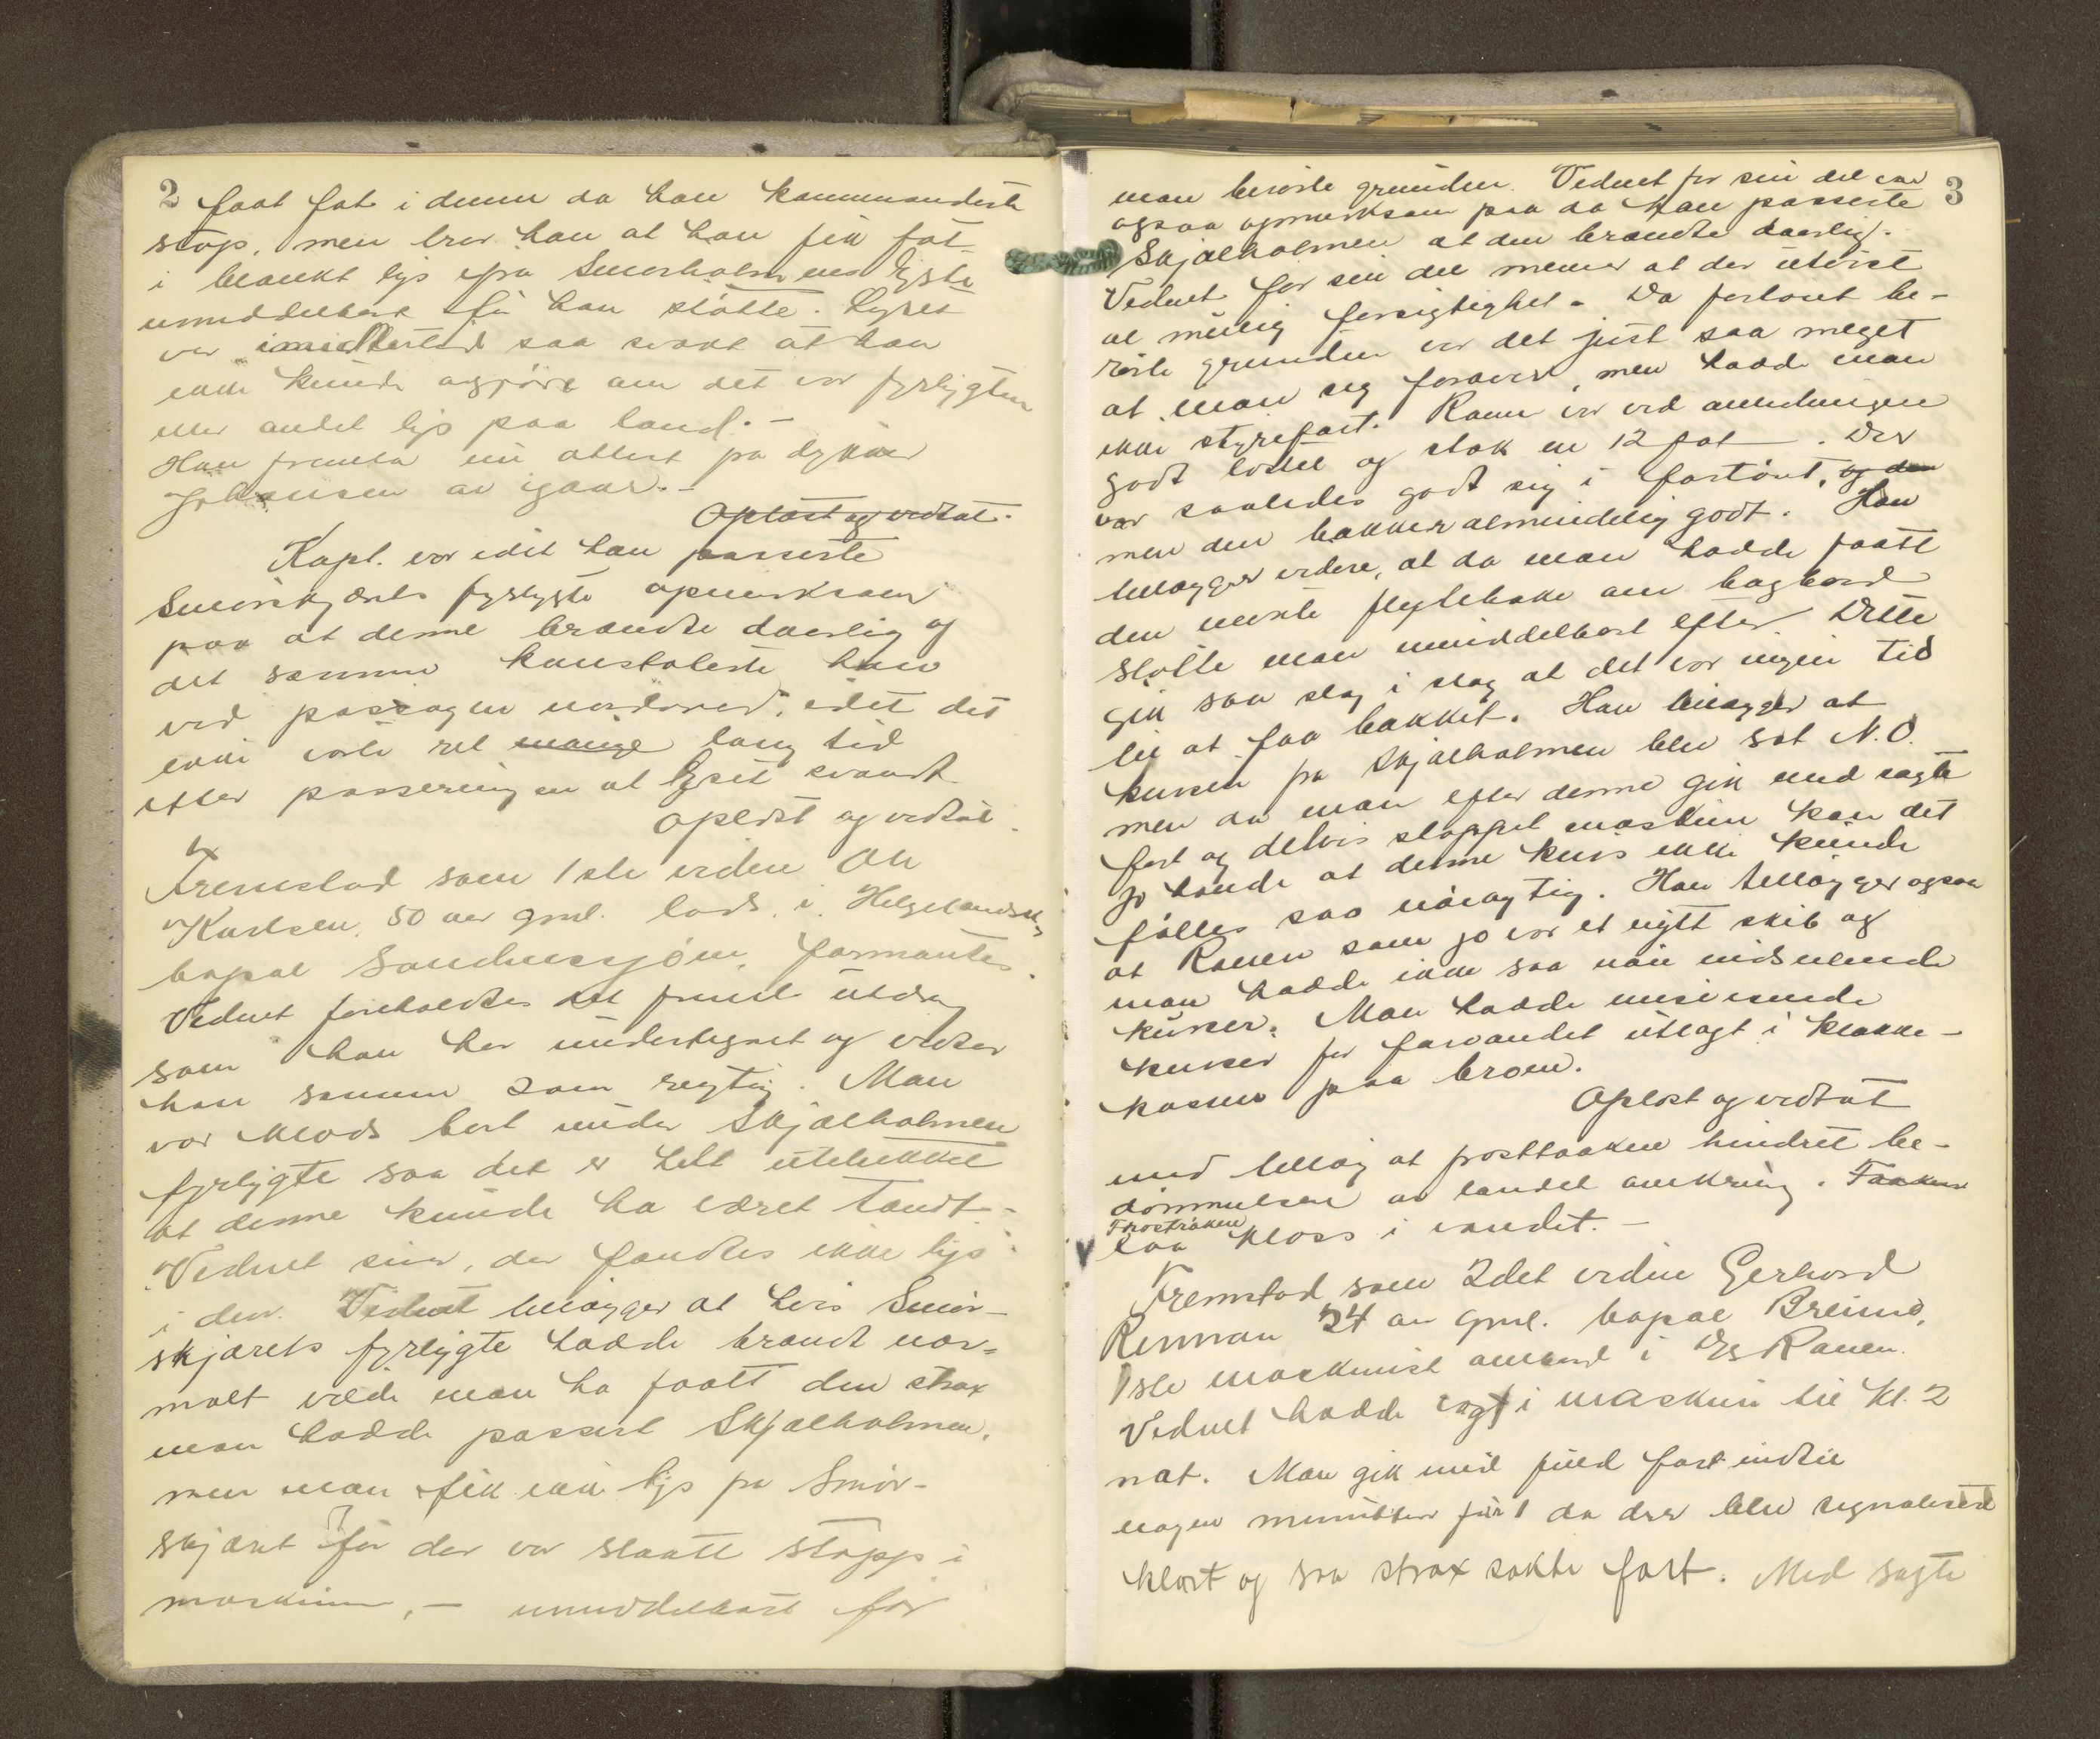 2
faat fat i denne da han kommanderte
stop, men tror han at han fik fat
i blankt lys fra Smørholmens lygte
umiddelbart før han støtte. Lyset
var imidlertid saa svakt at han
ikke kunde avgjøre om det var fyrlygten
eller andet lys paa land. -
Han fremla en attest fra dykker
Johansen av igaar. -
Oplæst og vedtat.
Kapt. var idet han passerte
Smørskjærets fyrlygte opmerksom
paa at denne brændte daarlig og
det samme konstaterte han
ved passagen nordover, idet det
ikke varte ret mange lang tid
efter passeringen at lyset svandt
oplæst og vedtat.
Fremstod som 1ste vidne Ole
Karlsen, 50 aar gml. lods i Helgelandsk,
bopæl Sandnessjøen, formantes.
Vidnet foreholdtes det freml. utdrag
som han har undertegnet og vedtar
han samme som rigtig. Man
var klods bort under Skjælholmen
fyrlygte saa det er helt utelukket
at denne kunde ha været tændt. -
Vidnet siver, der fandtes ikke lys
i den. Vidnet tilføyger at hvis Smør-
skjærets fyrlygte hadde brændt nor-
malt vilde man ha faatt den strax
man hadde passert Skjælholmen,
men man fik ikke lys fra Smør-
skjæret før der var slaatt stopp i
maskinen, - umiddelbart før
3
man berørte grunden. Vidnet for sin del var
ogsaa opmerksom paa da han passerte
Skjælholmen at den brændte daarlig.
Vidnet for sin del mener at der utvist
al mulig forsigtighet. Da fartøiet be-
rørte grunden var det just saa meget
at man seg forover, men hadde man
ikke styrefart. Ranen var ved anledningen
godt lastet og stak en 12 fot. Der
var saaledes godt sig i fartøiet, og den
men den bakker almindelig godt. Han
tillægger videre, at da man hadde faatt
den nevnte fyrlykt om bagbord
støtte man umiddelbart efter. Dette
gik saa slag i slag at det var ingen tid
til at faa bakket. Han tillægger at
kursen fra Skjælholmen blev sat N.O.
men da man efter denne gik med sagte
fart og delvis stoppet maskin kan det
jo hænde at denne kurs ikke kunde
følles saa nøiagtig. Han tillægger ogsaa
at Ranen som jo var et nytt skib og
man hadde ikke saa nøie
kurser. Man hadde misvisende
kurser for farvandet utlagt i klokke-
kassen paa broen.
Oplæst og vedtat
med tillæg at frosttaaken hindret be-
dømmelsen av landet omkring. Taaken
Frosttaaken
laa kloss i vandet. -
Fremstod som 2det vidne Gerhard
Renman 24 aar gml. bopæl Breimo,
1ste maskinist ombord i D/s Ranen.
Vidnet hadde vagt i maskin til kl. 2
nat. Man gik med fuld fart indtil
nogen minutter før 1 da der blev signalisert
klart og saa strax sakte fart. Med sagte